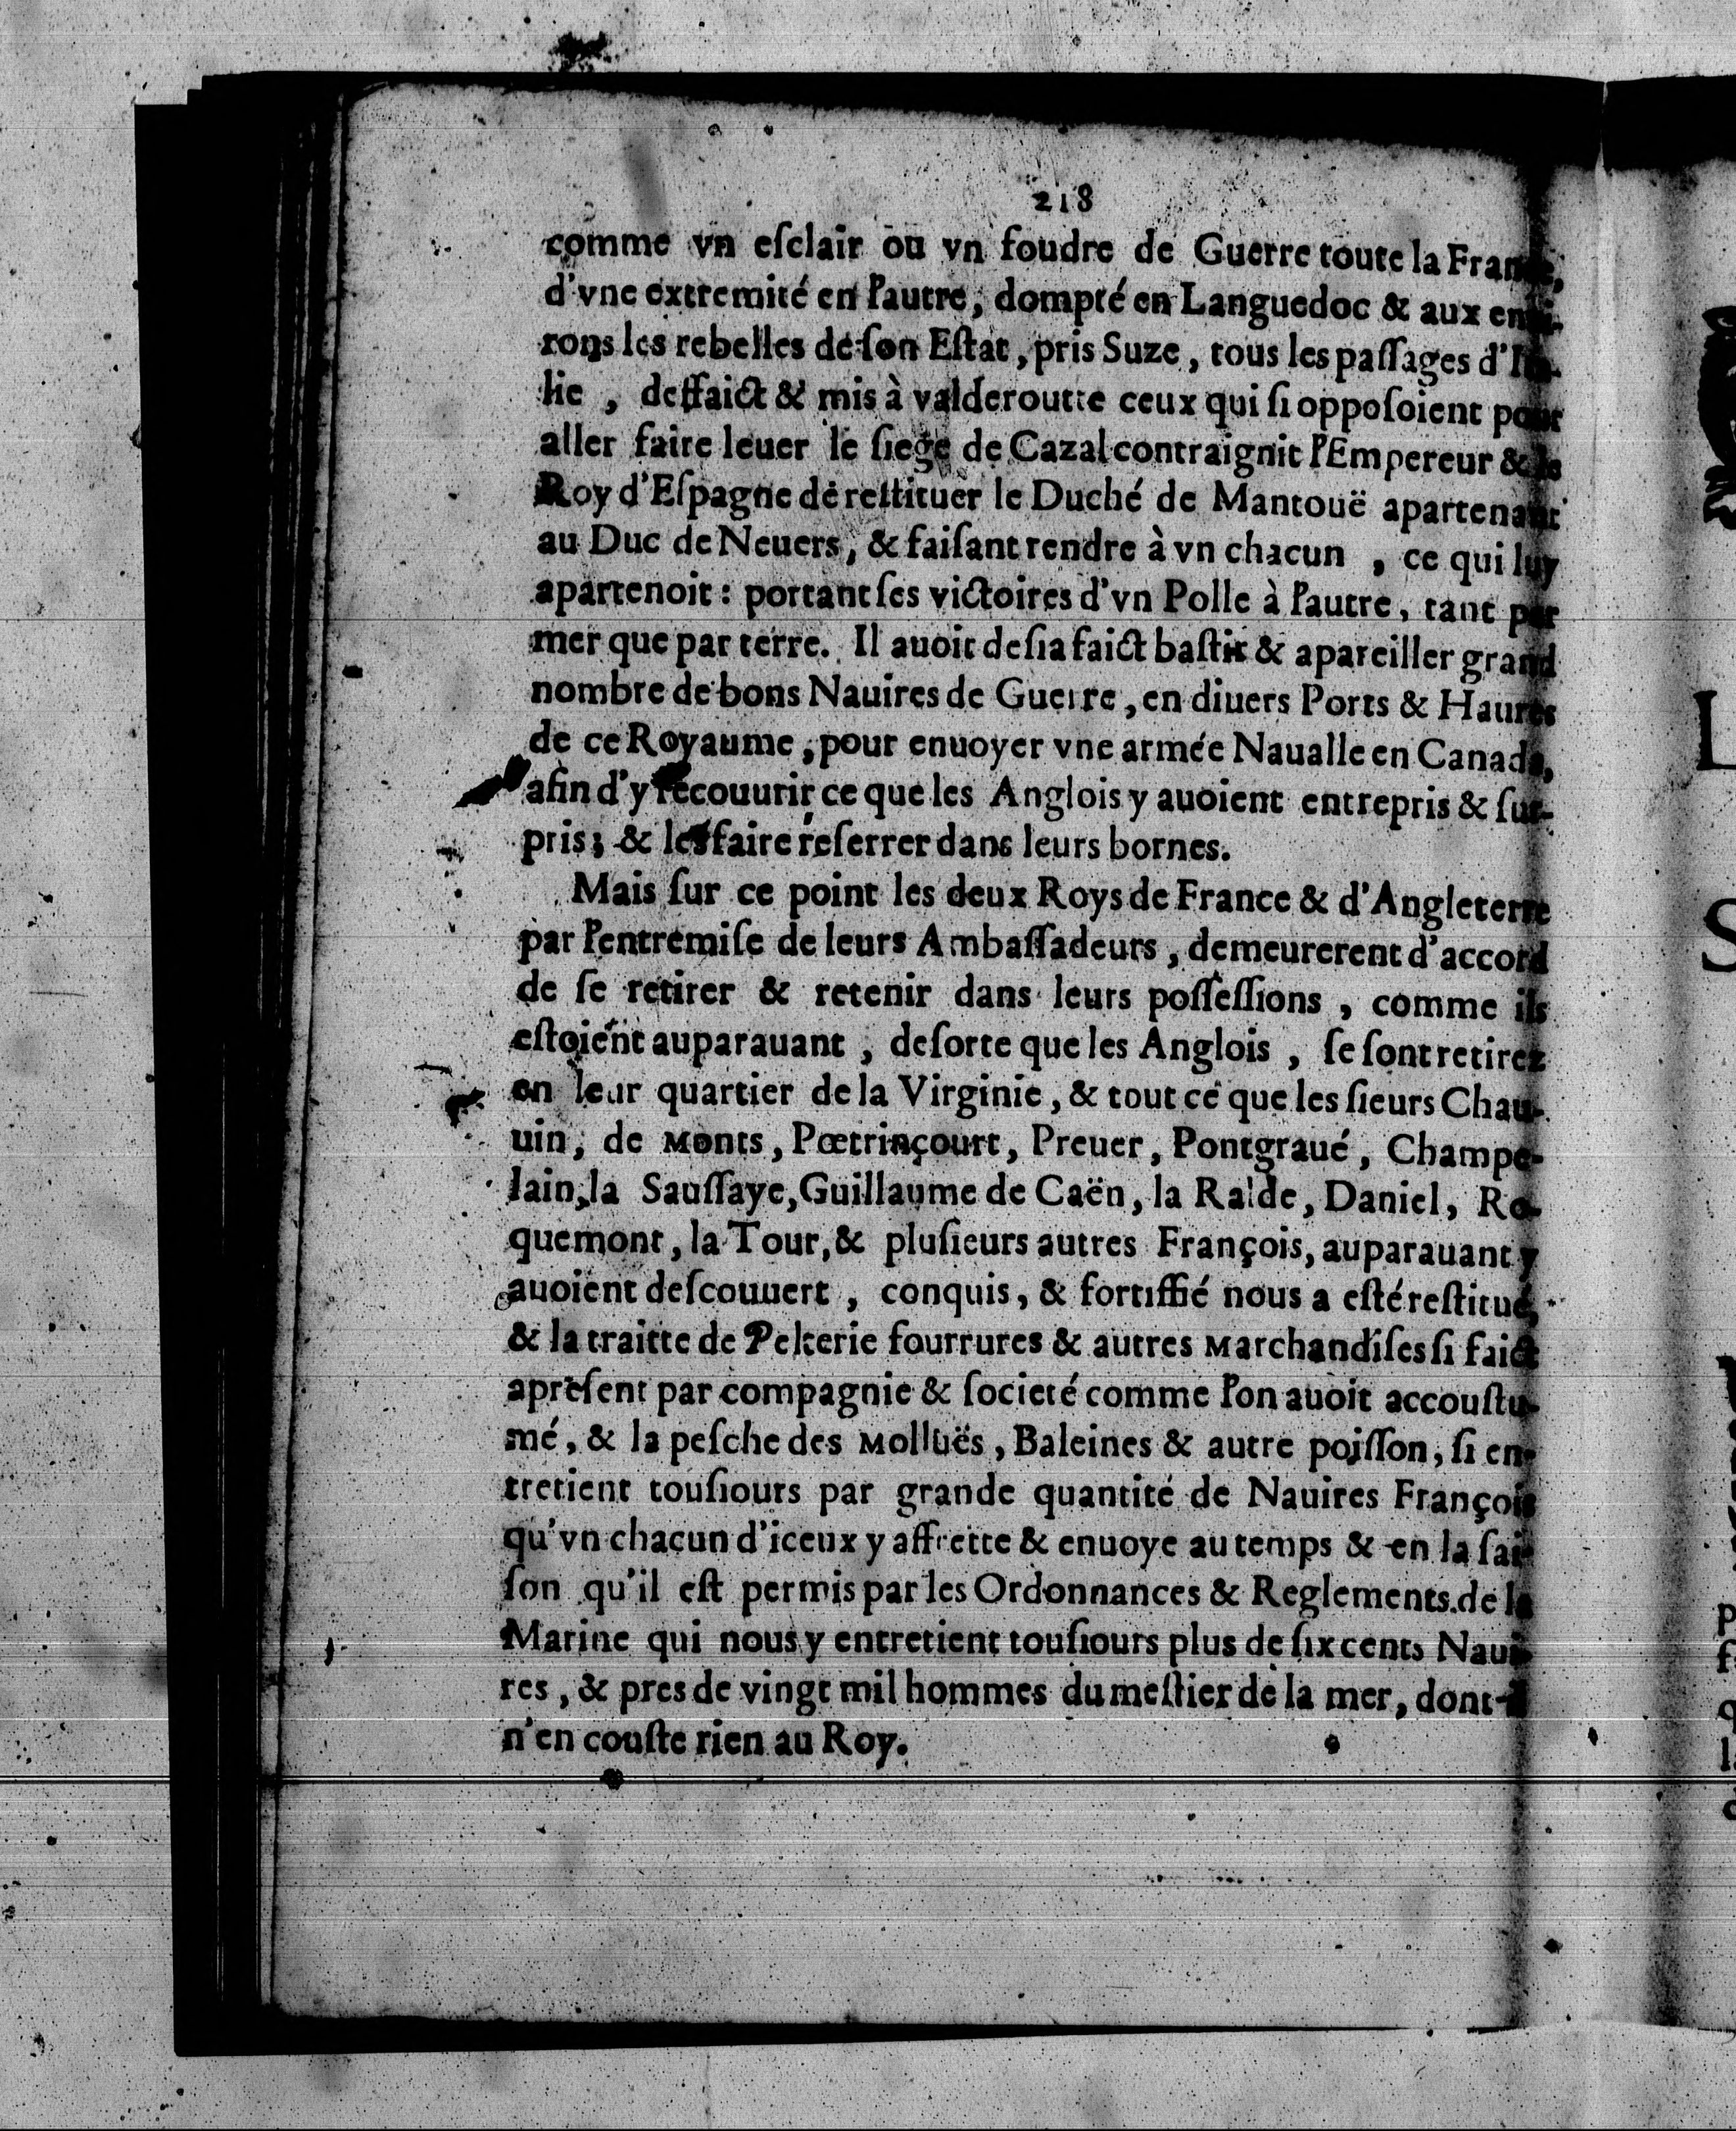 218
comme vn eſclair ou vn foudre de Guerre toute la France,
d'vne extremité en l'autre, dompté en Languedoc & aux enui-
rons les rebelles de ſon Eſtat, pris Suze, tous les paſſages d'Ita-
lie , deffaict & mis à valderoutte ceux qui ſi oppoſoient pour
aller faire leuer le ſiege de Cazal contraignit l'Empereur & le
Roy d'Eſpagne de reſtituer le Duché de Mantouë apartenant
au Duc de Neuers, & faiſant rendre à vn chacun , ce qui luy
apartenoit : portant ſes victoires d'vn Polle à l'autre, tant par
mer que par terre. Il auoit deſia faict baſtir & apareiller grand
nombre de bons Nauires de Guerre, en diuers Ports & Haures
de ce Royaume, pour enuoyer vne armée Naualle en Canada,
afin d'y recouurir ce que les Anglois y auoient entrepris & ſur-
pris; & les faire reſerrer dans leurs bornes.
Mais ſur ce point les deux Roys de France & d'Angleterre
par l'entremiſe de leurs Ambaſſadeurs, demeurerent d'accord
de ſe retirer & retenir dans leurs poſſeſſions , comme ils
eſtoient auparauant , deſorte que les Anglois , ſe ſont retirez
en leur quartier de la Virginie, & tout ce que les ſieurs Chau-
uin, de Monts, Pœtrinçourt, Preuer, Pontgraué, Champe-
lain, la Sauſſaye, Guillaume de Caën, la Ralde, Daniel, Ro-
quemont, la Tour, & pluſieurs autres François, auparauant y
auoient deſcouuert , conquis, & fortiffié nous a eſté reſtitué,
& la traitte de Pelterie fourrures & autres Marchandiſes ſi faict
apreſent par compagnie & ſocieté comme l'on auoit accouſtu-
mé, & la peſche des Molluës, Baleines & autre poiſſon, ſi en-
tretient touſiours par grande quantité de Nauires François
qu'vn chacun d'iceux y affrette & enuoye au temps & en la ſai-
ſon qu'il eſt permis par les Ordonnances & Reglements de la
Marine qui nous y entretient touſiours plus de ſix cents Naui-
res, & pres de vingt mil hommes du meſtier de la mer, dont il
n'en couſte rien au Roy.